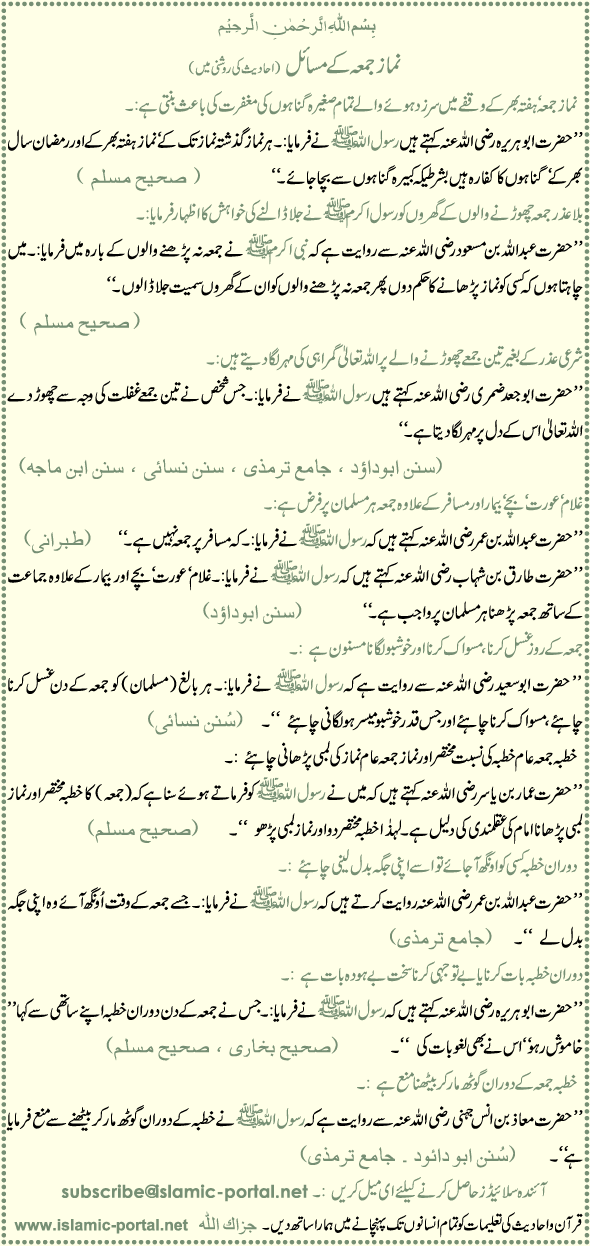 بِسْمِ اللهِ الرَّحْمٰنِ الرَّحِيْمِ
نماز جمعہ کے مسائل (احادیث کی روشنی میں)
نماز جمعہ‘ ہفتہ بھر کے وقفے میں سرزد ہوئے والے تمام صغیرہ گناہوں کی مغفرت کی باعث بنتی ہے:۔
’’حضرت ابو ہریرہ رضی اللہ عنہ کہتے ہیں رسول اللہ ﷺ نے فرمایا:۔ ہر نماز گذشتہ نماز تک کے‘ نماز ہفتہ بھر کے اور رمضان سال
بھر کے‘ گناہوں کا کفارہ ہیں بشرطیکہ کبیرہ گناہوں سے بچا جائے۔‘‘ ( صحیح مسلم )
بلا عذر جمعہ چھوڑنے والوں کے گھروں کو رسول اکرم ﷺ نے جلا ڈالنے کی خواہش کا اظہار فرمایا:۔
’’حضرت عبداللہ بن مسعود رضی اللہ عنہ سے روایت ہے کہ نبی اکرم ﷺ نے جمعہ نہ پڑھنے والوں کے بارہ میں فرمایا:۔ میں
چاہتا ہوں کہ کسی کو نماز پڑھانے کا حکم دوں پھر جمعہ نہ پڑھنے والوں کو ان کے گھروں سمیت جلا ڈالوں۔‘‘
( صحیح مسلم )
شرعی عذر کے بغیر تین جمعے چھوڑنے والے پر اللہ تعالیٰ گمراہی کی مہر لگا دیتے ہیں:۔
’’حضرت ابو جعد ضمری رضی اللہ عنہ کہتے ہیں رسول اللہ ﷺ نے فرمایا:۔ جس شخص نے تین جمعے غفلت کی وجہ سے چھوڑ دے
اللہ تعالیٰ اس کے دل پر مہر لگا دیتا ہے۔‘‘
(سنن ابوداؤد ، جامع ترمذی ، سنن نسائی ، سنن ابن ماجه)
غلام‘ عورت‘ بچے‘ بیمار اور مسافر کے علاوہ جمعہ ہر مسلمان پر فرض ہے:۔
’’حضرت عبداللہ بن عمر رضی اللہ عنہ کہتے ہیں کہ رسول اللہ ﷺ نے فرمایا:۔ کہ مسافر پر جمعہ نہیں ہے۔‘‘ (طبرانی)
’’حضرت طارق بن شہاب رضی اللہ عنہ کہتے ہیں کہ رسول اللہ ﷺ نے فرمایا:۔ غلام‘ عورت‘ بچے اور بیمار کے علاوہ جماعت
کے ساتھ جمعہ پڑھنا ہر مسلمان پر واجب ہے۔‘‘ (سنن ابوداؤد)
جمعہ کے روز غسل کرنا، مسواک کرنا اور خوشبو لگانا مسنون ہے :۔
’’حضرت ابو سعید رضی اللہ عنہ سے روایت ہے کہ رسول اللہ ﷺ نے فرمایا:۔ ہر بالغ (مسلمان) کو جمعہ کے دن غسل کرنا
چاہئے، مسواک کرنا چاہئے اور جس قدر خوشبو میسر ہو لگانی چاہئے ‘‘۔ (سُنن نسائی)
خطبہ جمعہ عام خطبہ کی نسبت مختصر اور نماز جمعہ عام نماز کی لمبی پڑھانی چاہئے :۔
’’حضرت عمار بن یاسر رضی اللہ عنہ کہتے ہیں کہ میں نے رسول اللہ ﷺ کو فرماتے ہوئے سنا ہے کہ (جمعہ) کا خطبہ مختصر اور نماز
لمبی پڑھانا امام کی عقلمندی کی دلیل ہے۔ لہٰذا خطبہ مختصر دو اور نماز لمبی پڑھو ‘‘۔ (صحیح مسلم)
دوران خطبہ کسی کو اونگھ آ جائے تو اسے اپنی جگہ بدل لینی چاہئے :۔
’’حضرت عبداللہ بن عمر رضی اللہ عنہ روایت کرتے ہیں کہ رسول اللہ ﷺ نے فرمایا:۔ جسے جمعہ کے وقت اُونگھ آئے وہ اپنی جگہ
بدل لے ‘‘۔ (جامع ترمذی)
دوران خطبہ بات کرنا یا بے توجہی کرنا سخت بے ہودہ بات ہے :۔
’’حضرت ابو ہریرہ رضی اللہ عنہ کہتے ہیں کہ رسول اللہ ﷺ نے فرمایا:۔ جس نے جمعہ کے دن دوران خطبہ اپنے ساتھی سے کہا’’
خاموش رہو‘‘ اس نے بھی لغو بات کی ‘‘۔ (صحیح بخاری ، صحیح مسلم)
خطبہ جمعہ کے دوران گوٹھ مار کر بیٹھنا منع ہے :۔
’’حضرت معاذ بن انس جہنی رضی اللہ عنہ سے روایت ہے کہ رسول اللہ ﷺ نے خطبہ کے دوران گوٹھ مار کر بیٹھنے سے منع فرمایا
ہے‘‘۔ (سُنن ابو دائود ۔ جامع ترمذی)
آئندہ سلائیڈز حاصل کرنے کیلئے ای میل کریں :۔ subscribe@islamic-portal.net
قرآن و احادیث کی تعلیمات کو تمام انسانوں تک پہنچانے میں ہمارا ساتھ دیں۔ جزاك الله www.islamic-portal.net